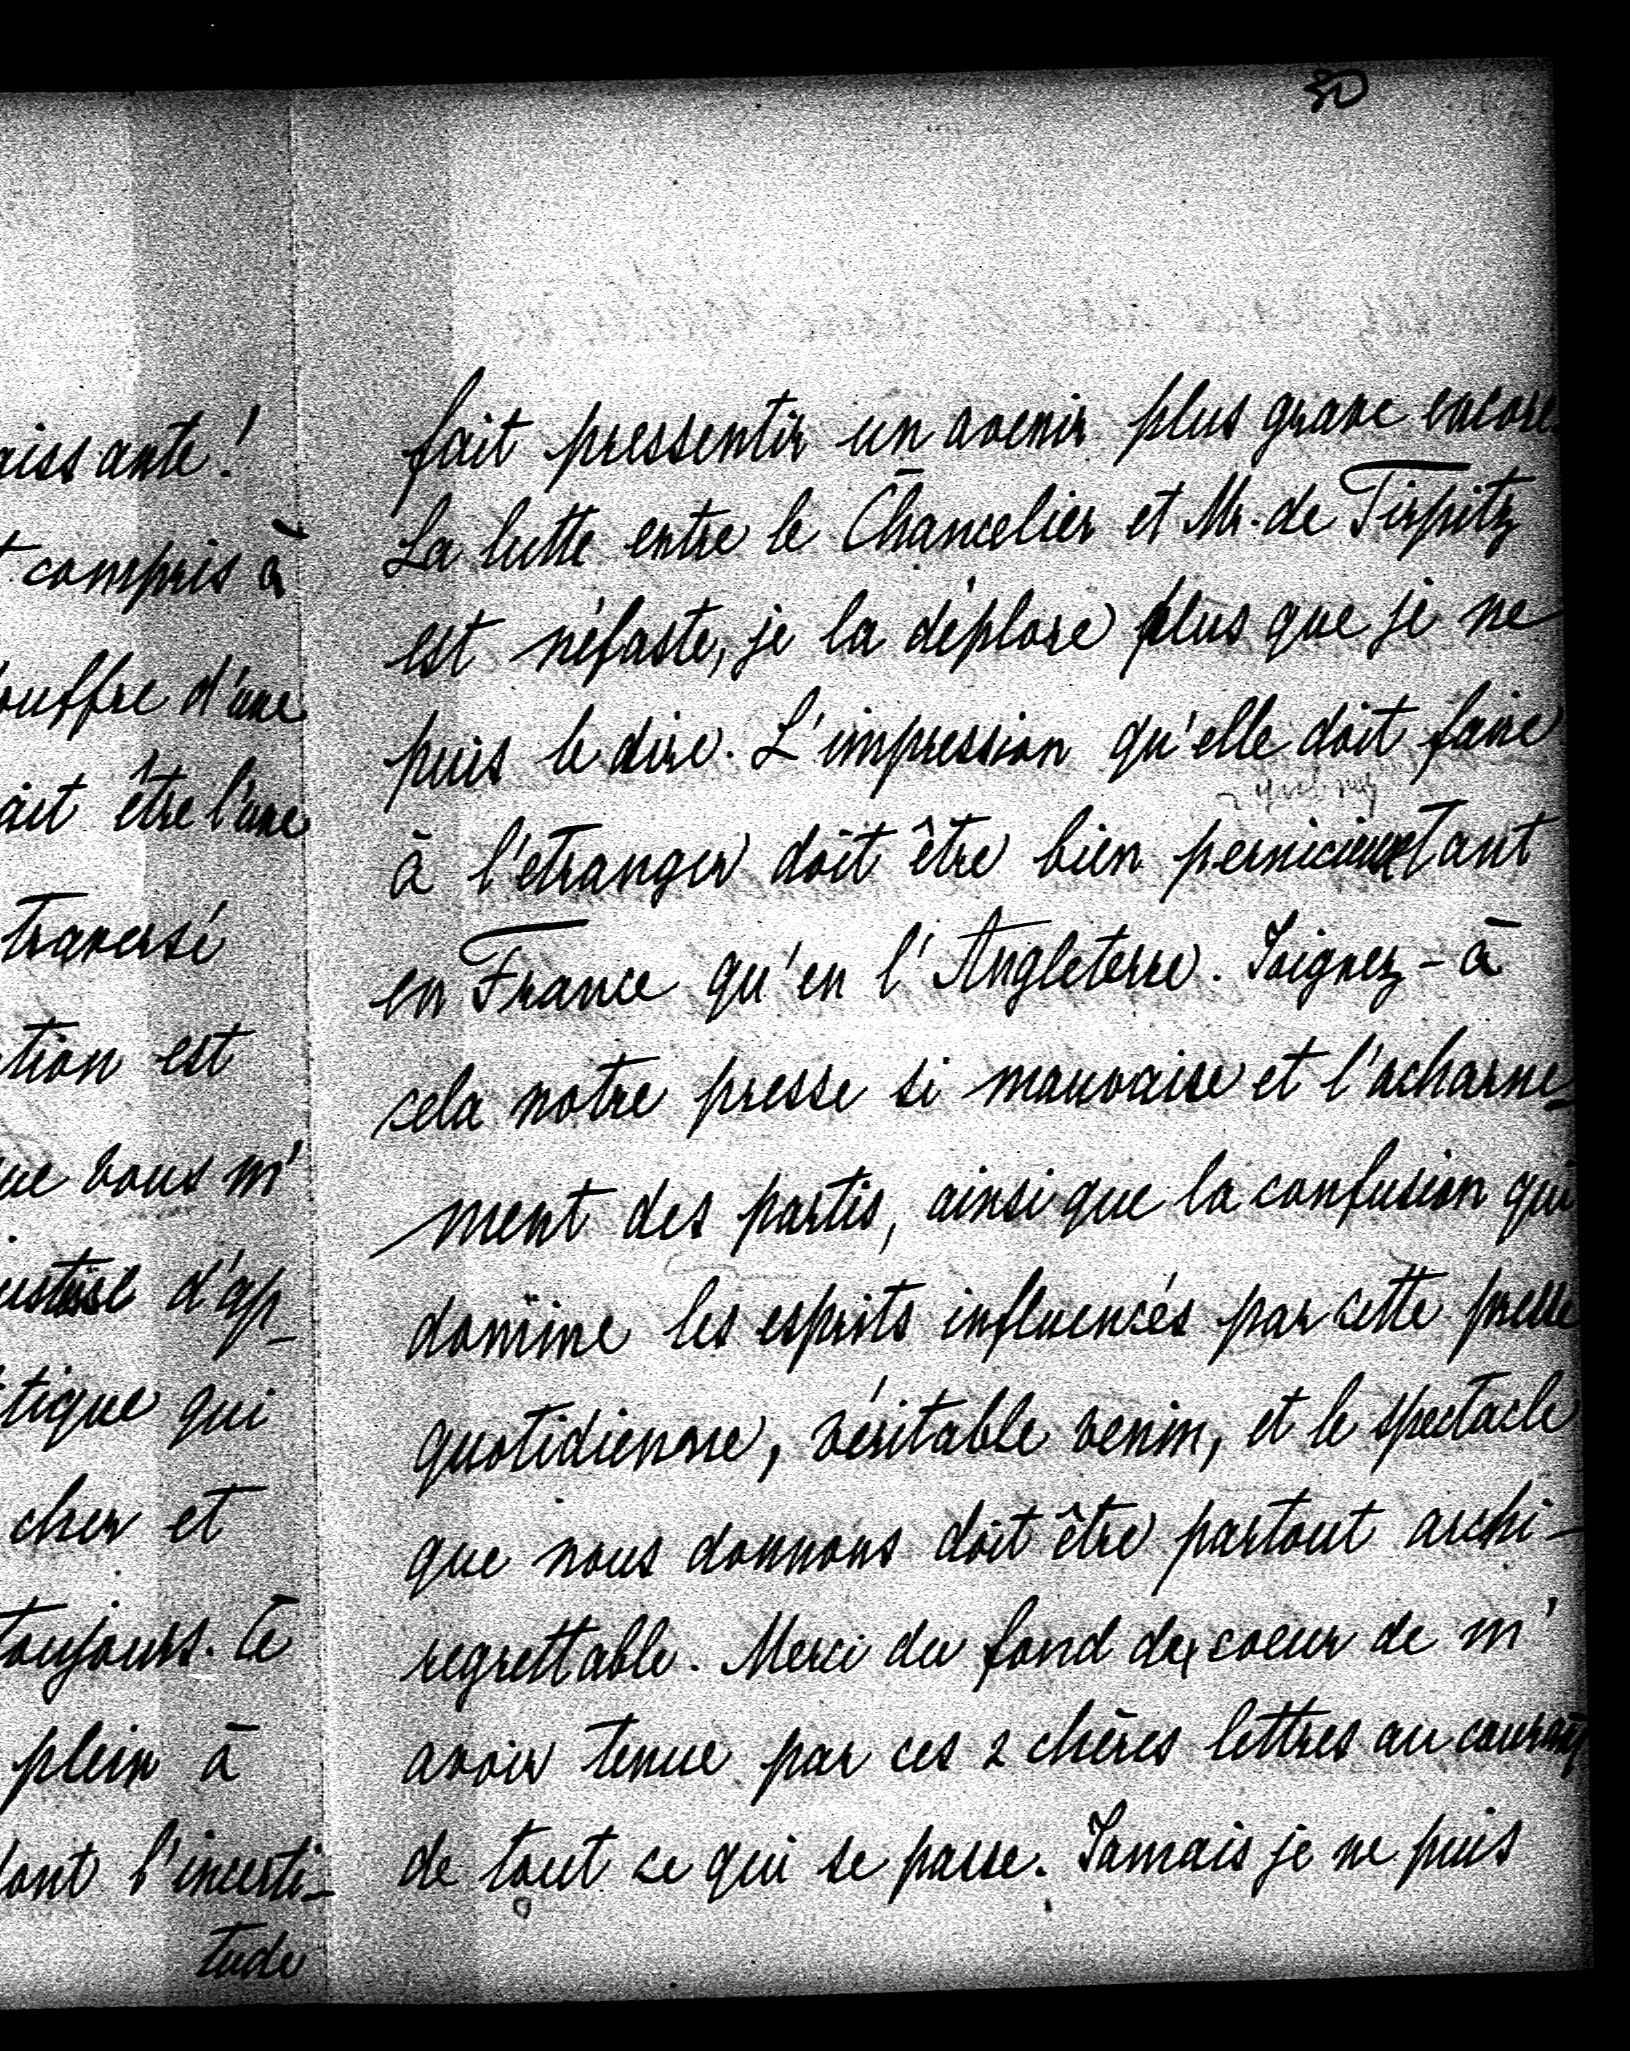 aissante!
t compris à
ouffre d'une
ait être l'une
traversé
tion est
ue vous m'
d'ap-
tique qui
cher et
toujours. Ce
plein à
dont l'incerti-
tude
50
fait pressentir un avenir plus grave encore.
La lutte entre le Chancelier et Mr. de Tirpitz
est néfaste, je la déplore plus que je ne
puis le dire. L'impression qu'elle doit faire
à l'etranger doit être bien pernicieuse tant
en France qu'en l'Angleterre. Joignez-à
cela notre presse si mauvaise et l'acharne-
ment des partis, ainsi que la confusion qui
domine les esprits influencés par cette presse
quotidienne, véritable venin, et le spectacle
que nous donnons doit être partout archi-
regrettable. Merci du fond de coeur de m'
avoir tenue par ces 2 chères lettres au courant
de tout ce qui se passe. Jamais je ne puis